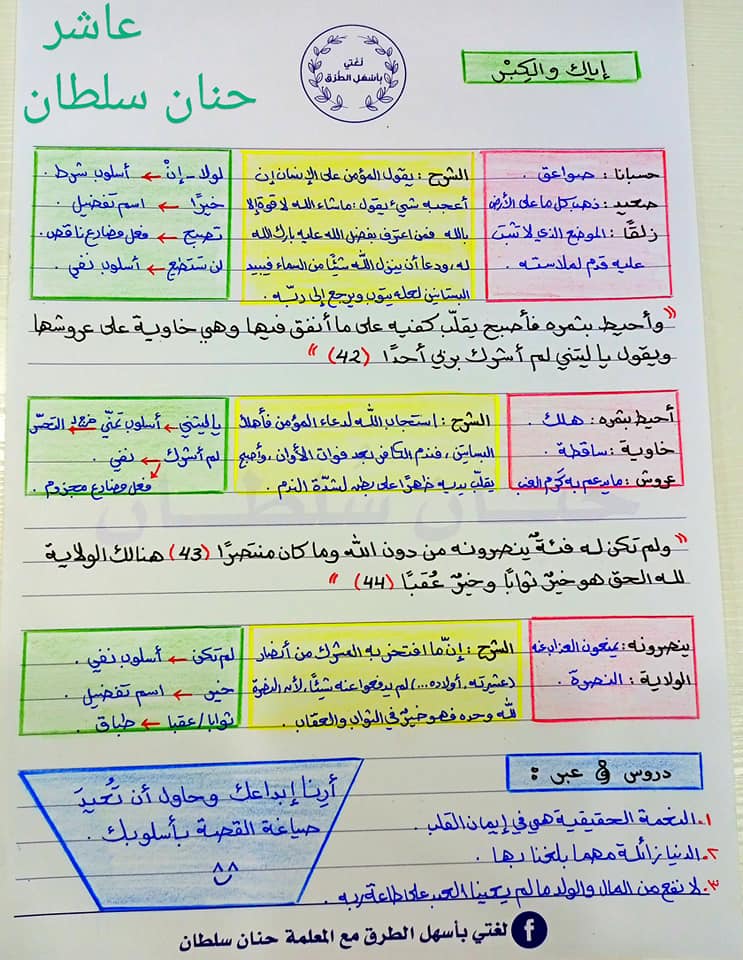 عاشر
حنان سلطان
لغتي
بأسهل الطرق
إياك والكِبْر
حسبانا : صواعق .
صعيد : ذهب كل ما على الأرض
زلقًا : الموضع الذي لا تثبت
عليه قدم لملاسته .
الشرح : يقول المؤمن على الإنسان إن
أعجبه شيء يقول : ماشاء الله لا قوة إلا
بالله فمن اعترف بفضل الله عليه بارك الله
له ، ودعا أن ينزل الله شيئًا من السماء فيبيد
البستانين لعله يتوب ويرجع إلى ربّه .
لولا - إنْ ← أسلوب شرط .
خيرًا ← اسم تفضيل .
تصبح ← فعل مضارع ناقص .
لن تستطع ← أسلوب نفي .
" وأحيط بثمره فأصبح يقلّب كفيه على ما أنفق فيها وهي خاوية على عروشها
ويقول يا ليتني لم أشرك بربي أحدًا (42) "
أحيط بثمره : هلك .
خاوية : ساقطة .
عروش : ما يدعم به كَرْم العنب
الشرح : استجاب الله لدعاء المؤمن فأهلك
البساتين ، فندم الكافر بعد فوات الأوان ، وأصبح
يقلّب يديه ظهرًا على بطن لشدّة الندم .
يا ليتني ← أسلوب تمنّي خرج لـ التحسّر
لم أشرك ← نفي .
فعل مضارع مجزوم .
حنان سلطان
" ولم تكن له فئةٌ ينصرونه من دون الله وما كان منتصرًا (43) هنالك الولاية
لله الحق هو خيرٌ ثوابًا وخيرٌ عُقبًا (44) "
ينصرونه : يمنعون العذاب عنه
الولاية : النصرة .
الشرح : إنّ ما افتخر به المشرك من أنصار
(عشيرته ، أولاده ...) لم يدفعوا عنه شيئًا ، لأن النصرة
لله وحده فهو خيرٌ في الثواب والعقاب .
لم تكن ← أسلوب نفي .
خير ← اسم تفضيل .
ثوابا / عقبا ← طباق .
دروس و عبر :
١. النعمة الحقيقية هي في إيمان القلب .
٢. الدنيا زائلة مهما بلغنا بها .
٣. لا نفع من المال والولد ما لم يعينا العبد على طاعة ربه .
أرِنا إبداعك وحاول أن تُعيدَ
صياغة القصة بأسلوبك .
^^
لغتي بأسهل الطرق مع المعلمة حنان سلطان